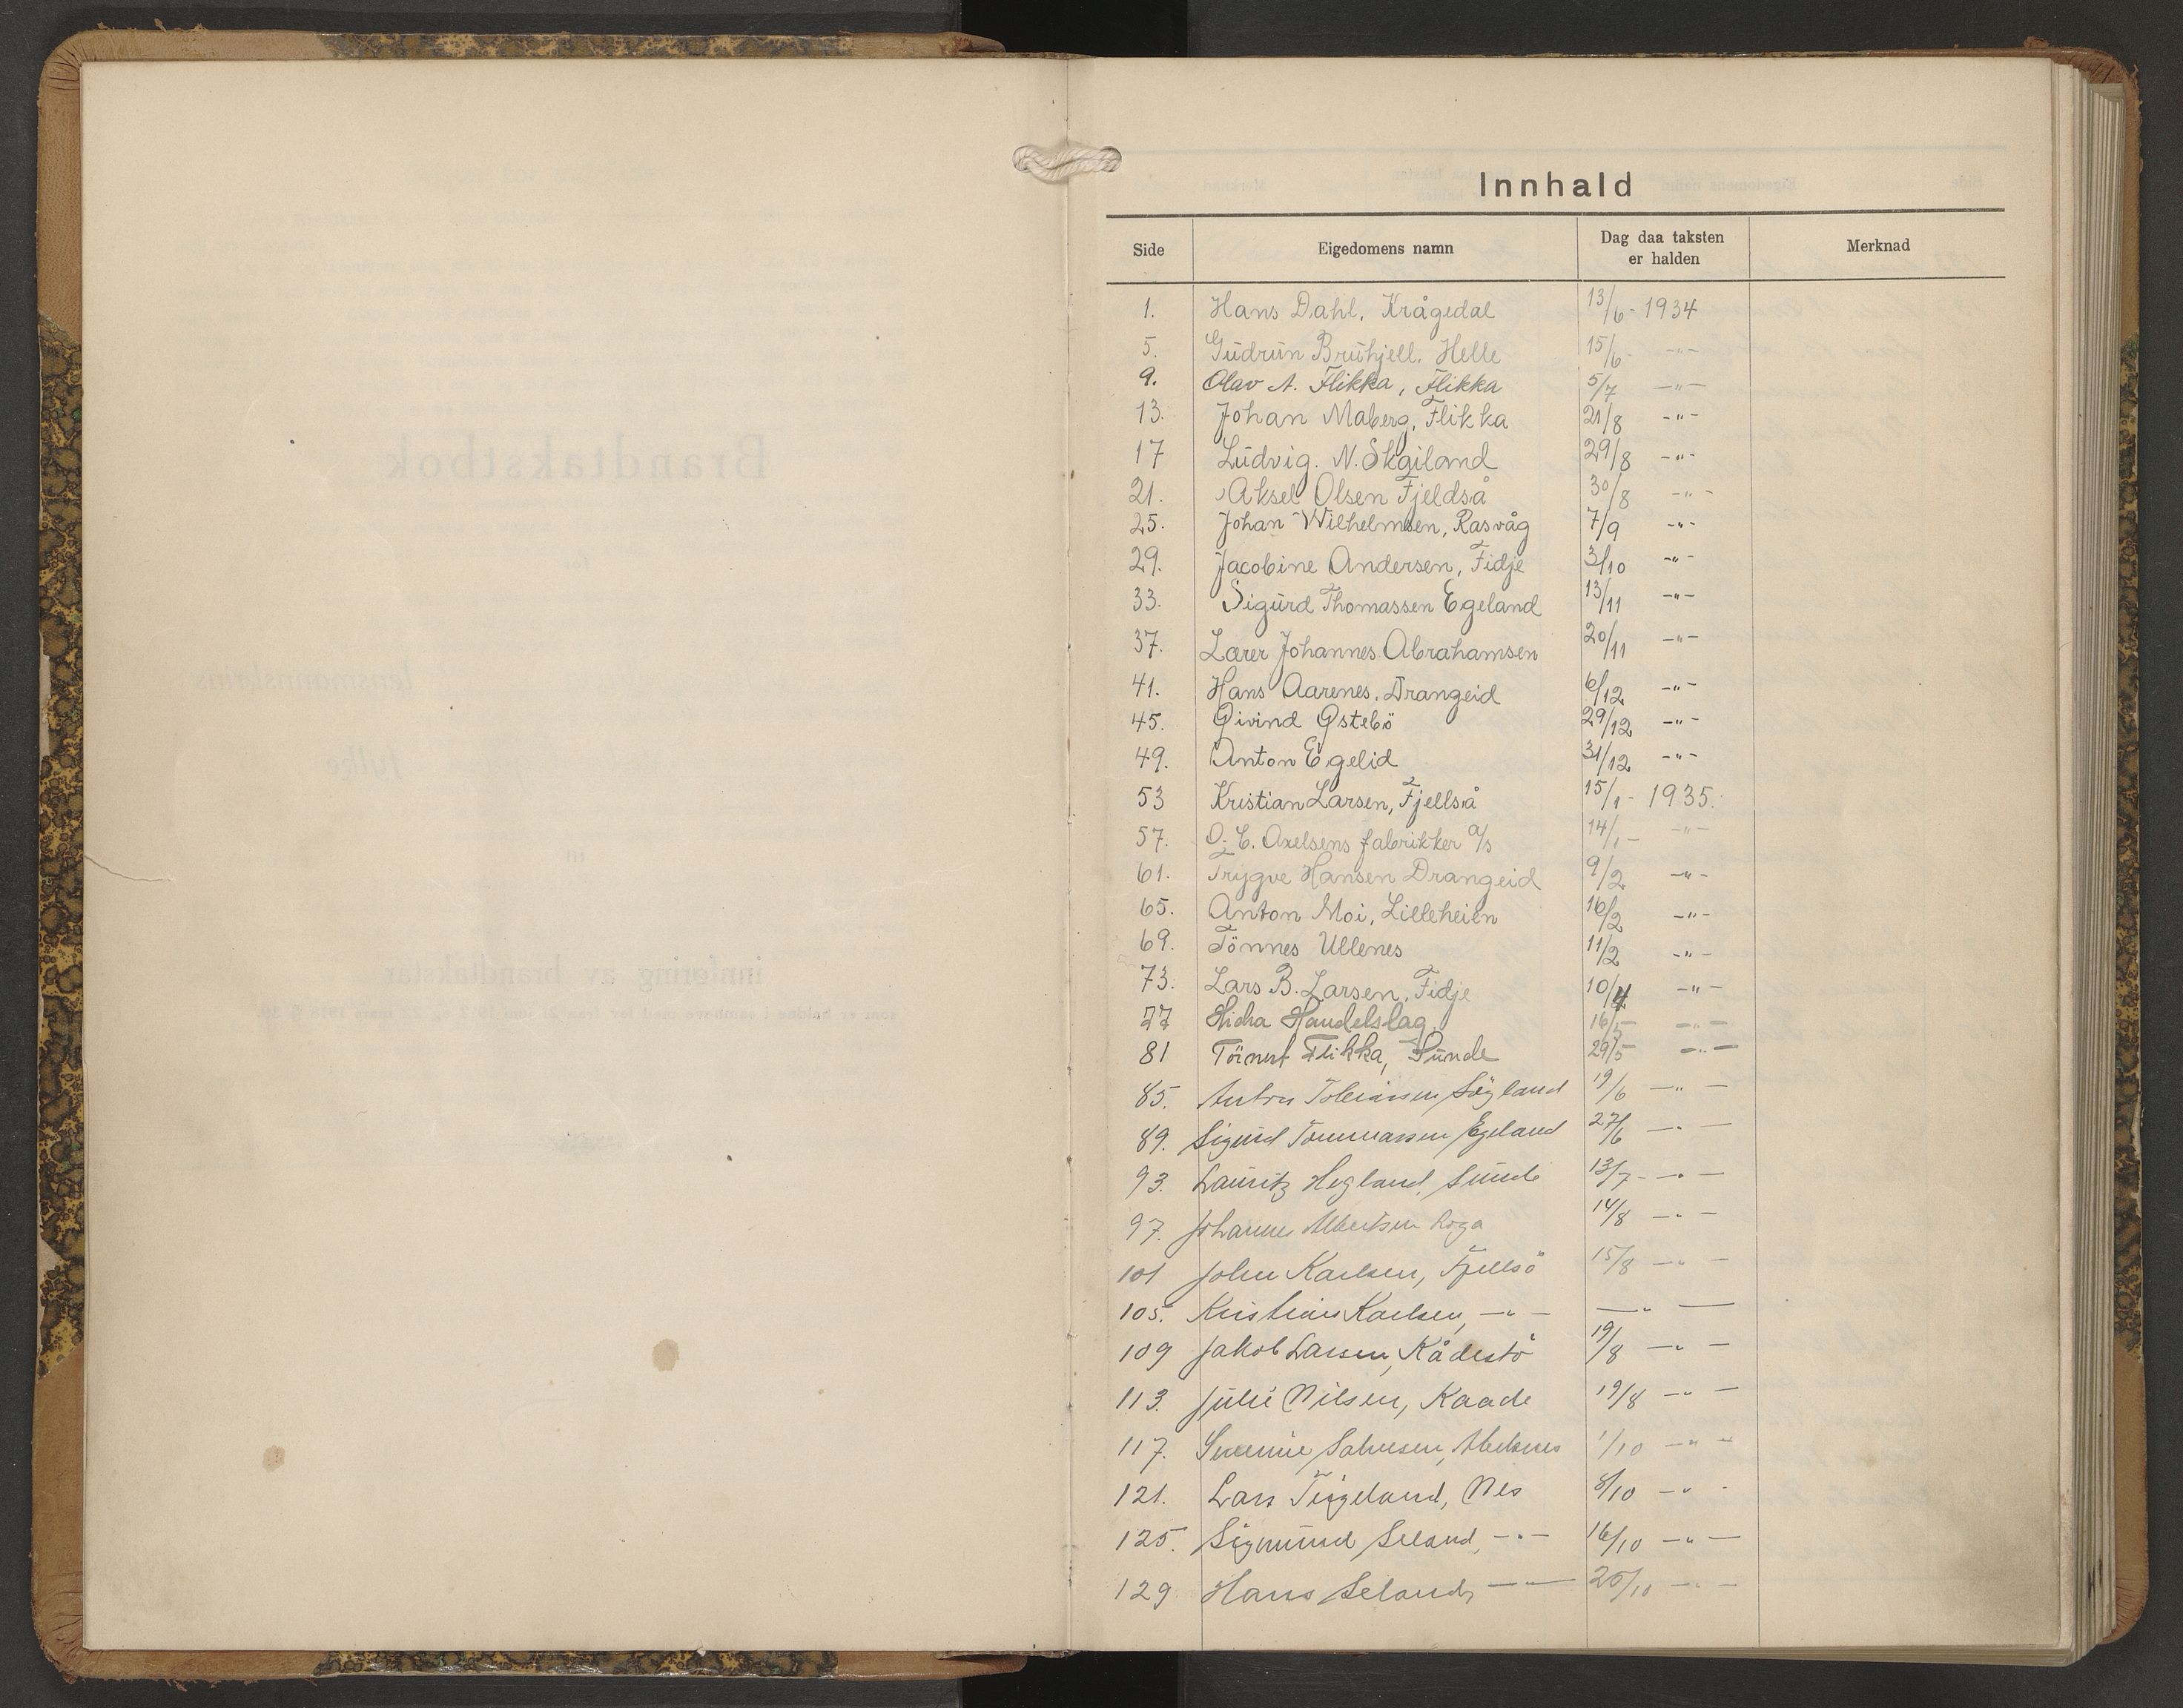 Innhald
Side Eigedomens namn Dag daa taksten er halden Merknad
1. Hans Dahl, Krågedal 13/6 - 1934
5. Gudrun Bruhjell. Helle 15/6 - -"-
9. Olav A. Flikka, Flikka 5/7 -"-
13. Johan Maberg, Flikka 21/8 -"-
17 Ludvig. N. Skailand 29/8 -"-
21. Aksel Olsen Fjeldså 30/8 -"-
25. Johan Wilhelmsen, Rasvåg 7/9 -"-
29. Jacobine Andersen, Fidje 3/10 -"-
33. Sigurd Thomassen Egeland 13/11 -"-
37. Lærer Johannes Abrahamsen 20/11 -"-
41. Hans Aarenes. Drangeid 6/12 -"-
45. Øivind Østebö 29/12 -"-
49. Anton Egelid 31/12 -"-
53 Kristian Larsen, Fjellså 15/1 - 1935.
57. O. C. Axelsens fabrikker a/s 14/1 - -"-
61. Trygve Hansen Drangeid 9/2 -"-
65. Anton Moi, Lilleheien 16/2 -"-
69. Tönnes Ullenes 11/2 -"-
73. Lars B. Larsen. Fidje 10/4 -"-
77 Hidra Handelslag. 16/5 -"-
81 Flikka, Sunde 29/5 -"-
85. Anton Tobiassen Sögland 19/6 -"-
89. Sigurd Tommassen Egeland 27/6 -"-
93. Lauritz Hegland, Sunde 13/7 - -"-
97. Johannes Albertsen Roga 14/8 -"-
101 John Karlsen, Fjellså 15/8 -"-
105. Kristian Karlsen, -"- -"-
109 Jakob Larsen, Kådestö 19/8 -"-
113. Julie Nilsen, Kaade 19/8 -"-
117. Salvesen, 1/10 -"-
121. Lars Teigeland, Nes 8/10 -"-
125. Sigmund Seland, -"- 16/10 -"-
129. Hans Seland, -"- 20/10 -"-